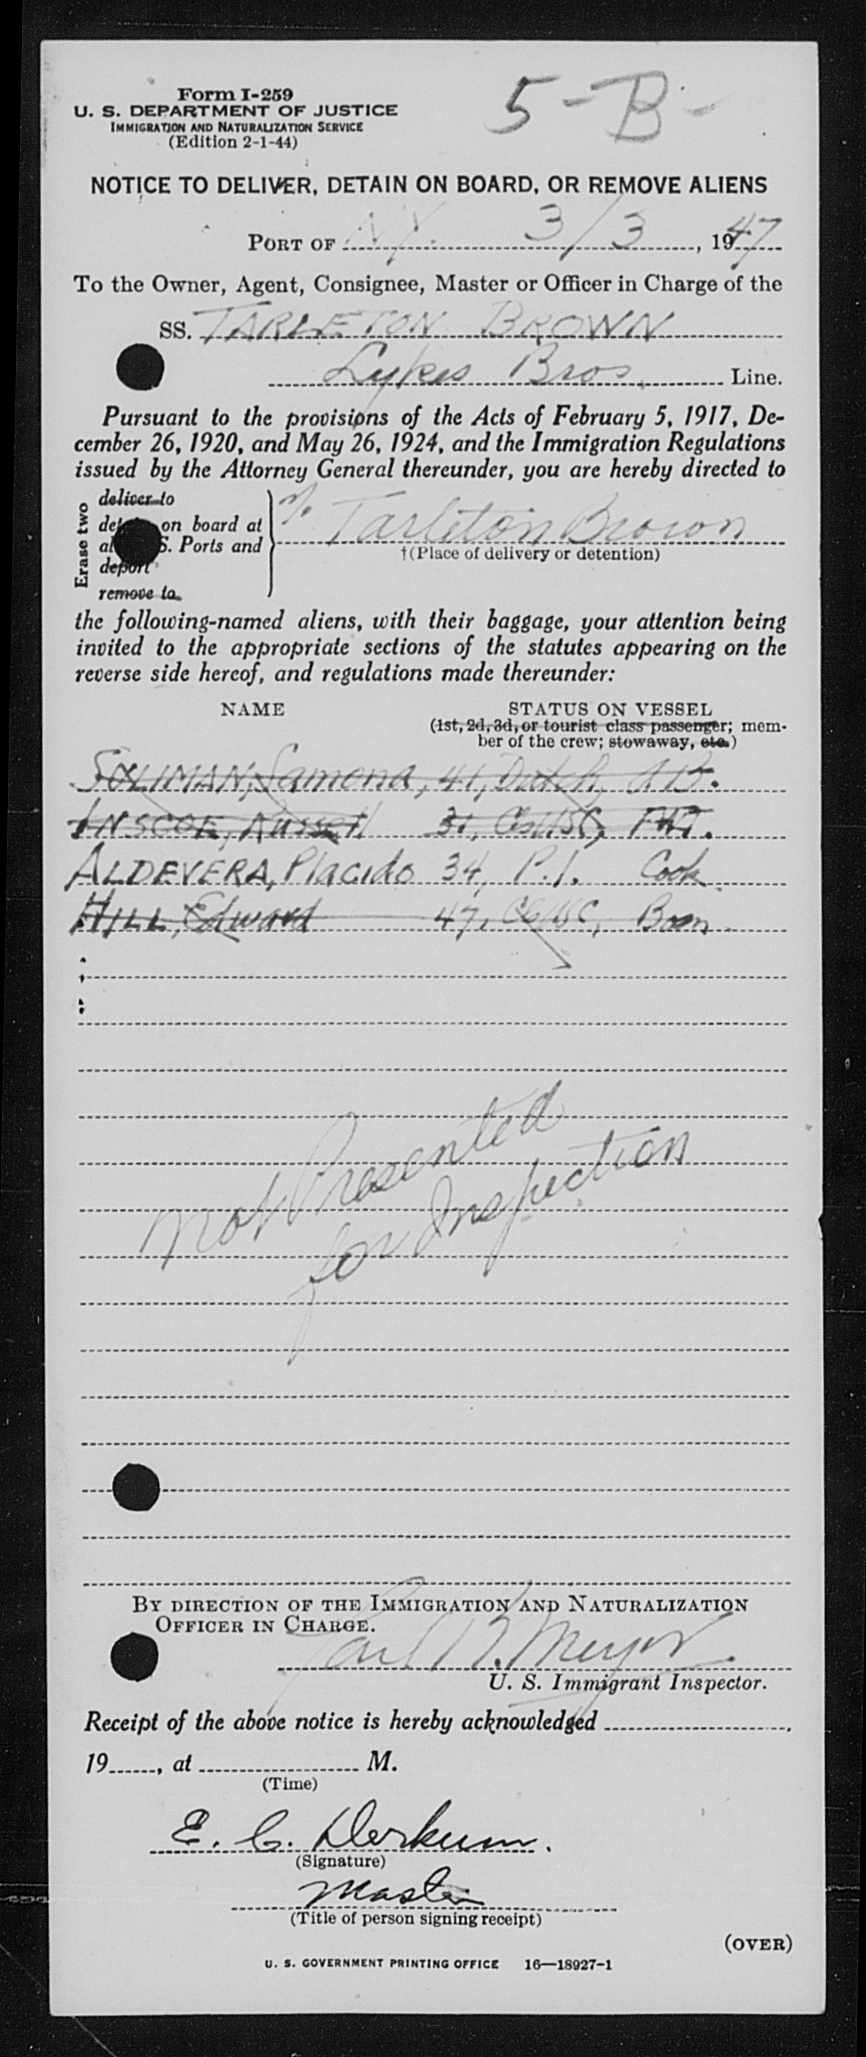 Form I-259
5-B-
U. S. DEPARTMENT OF JUSTICE
IMMIGRATION AND NATURALIZATION SERVICE
(Edition 2-1-44)
NOTICE TO DELIVER, DETAIN ON BOARD, OR REMOVE ALIENS
PORT OF N.Y. 3/3, 1947
To the Owner, Agent, Consignee, Master or Officer in Charge of the
SS. TARLETON BROWN
Lykes Bros. Line.
Pursuant to the provisions of the Acts of February 5, 1917, De-
cember 26, 1920, and May 26, 1924, and the Immigration Regulations
issued by the Attorney General thereunder, you are hereby directed to
Erase two
deliver to
on board at
S. Ports and
deport
remove to
Tarleton Brown
†(Place of delivery or detention)
the following-named aliens, with their baggage, your attention being
invited to the appropriate sections of the statutes appearing on the
reverse side hereof, and regulations made thereunder:
NAME STATUS ON VESSEL
(1st, 2d, 3d, or tourist class passenger; mem-
ber of the crew; stowaway, etc.)
SOLIMAN, Samona, 41, Dutch, AB.
INSCOE, Russell 31,
ALDEVERA, Placido 34, P.I. Cook
HILL, Edward 47, Bosn.
Not Presented
for Inspection
BY DIRECTION OF THE IMMIGRATION AND NATURALIZATION
OFFICER IN CHARGE.
Meyer
U. S. Immigrant Inspector.
Receipt of the above notice is hereby acknowledged
19, at M.
(Time)
E. C. Derkum.
(Signature)
Master
(Title of person signing receipt)
(OVER)
U. S. GOVERNMENT PRINTING OFFICE 16—18927-1